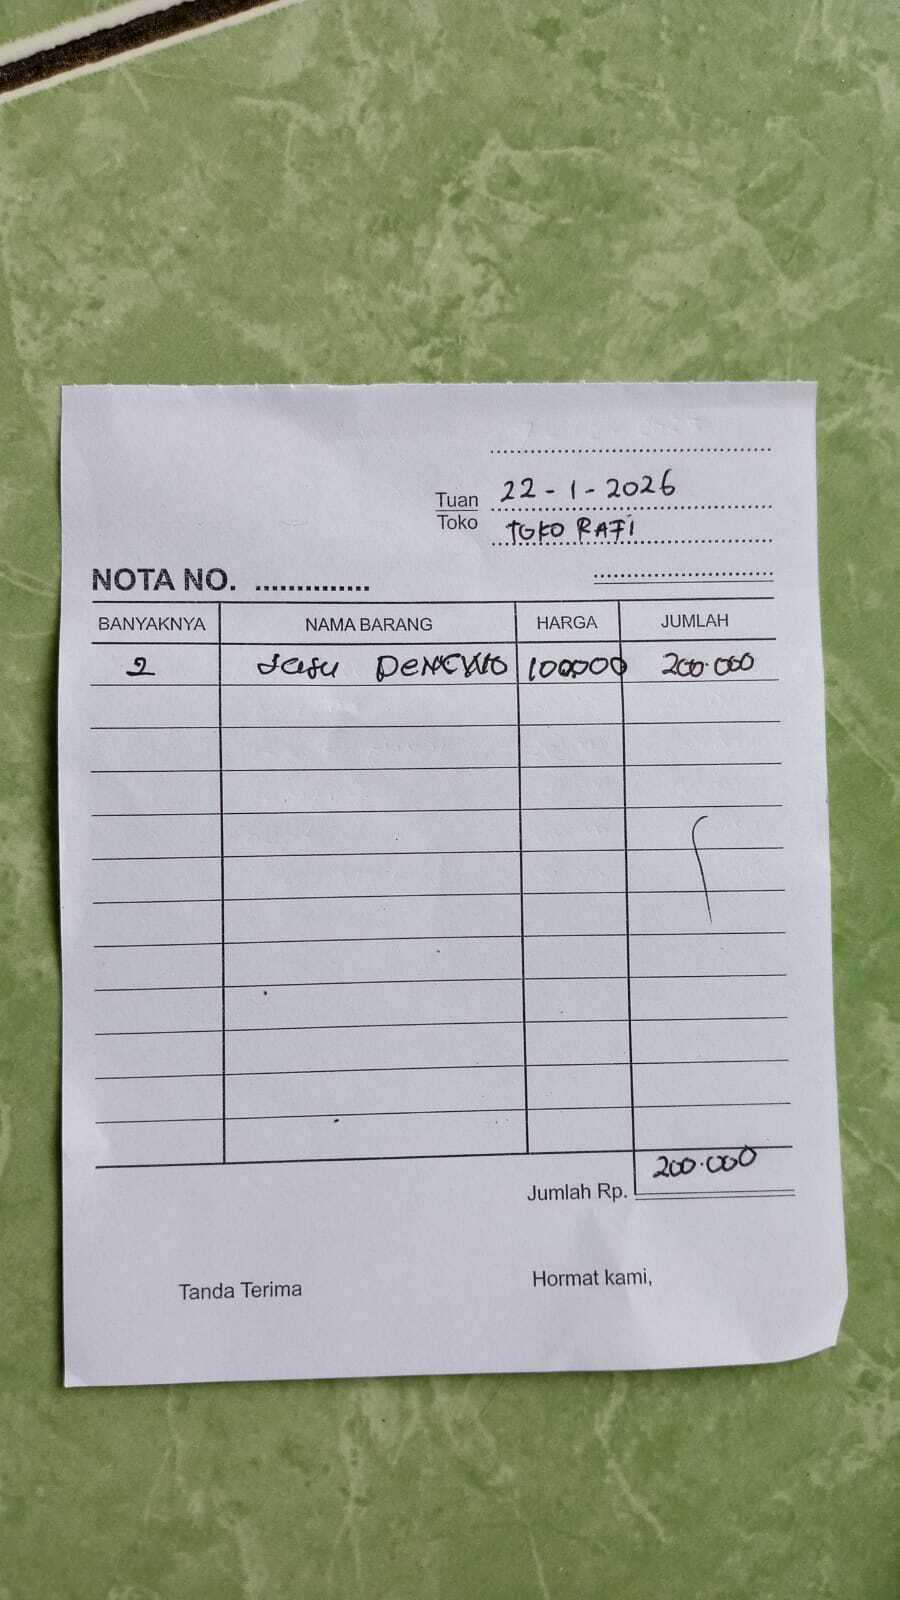 22-1-2026
Tuan
Toko
TOKO RAFI
NOTA NO. ..............
BANYAKNYA NAMA BARANG HARGA JUMLAH
2 susu 100.000 200.000
Jumlah Rp. 200.000
Tanda Terima Hormat kami,